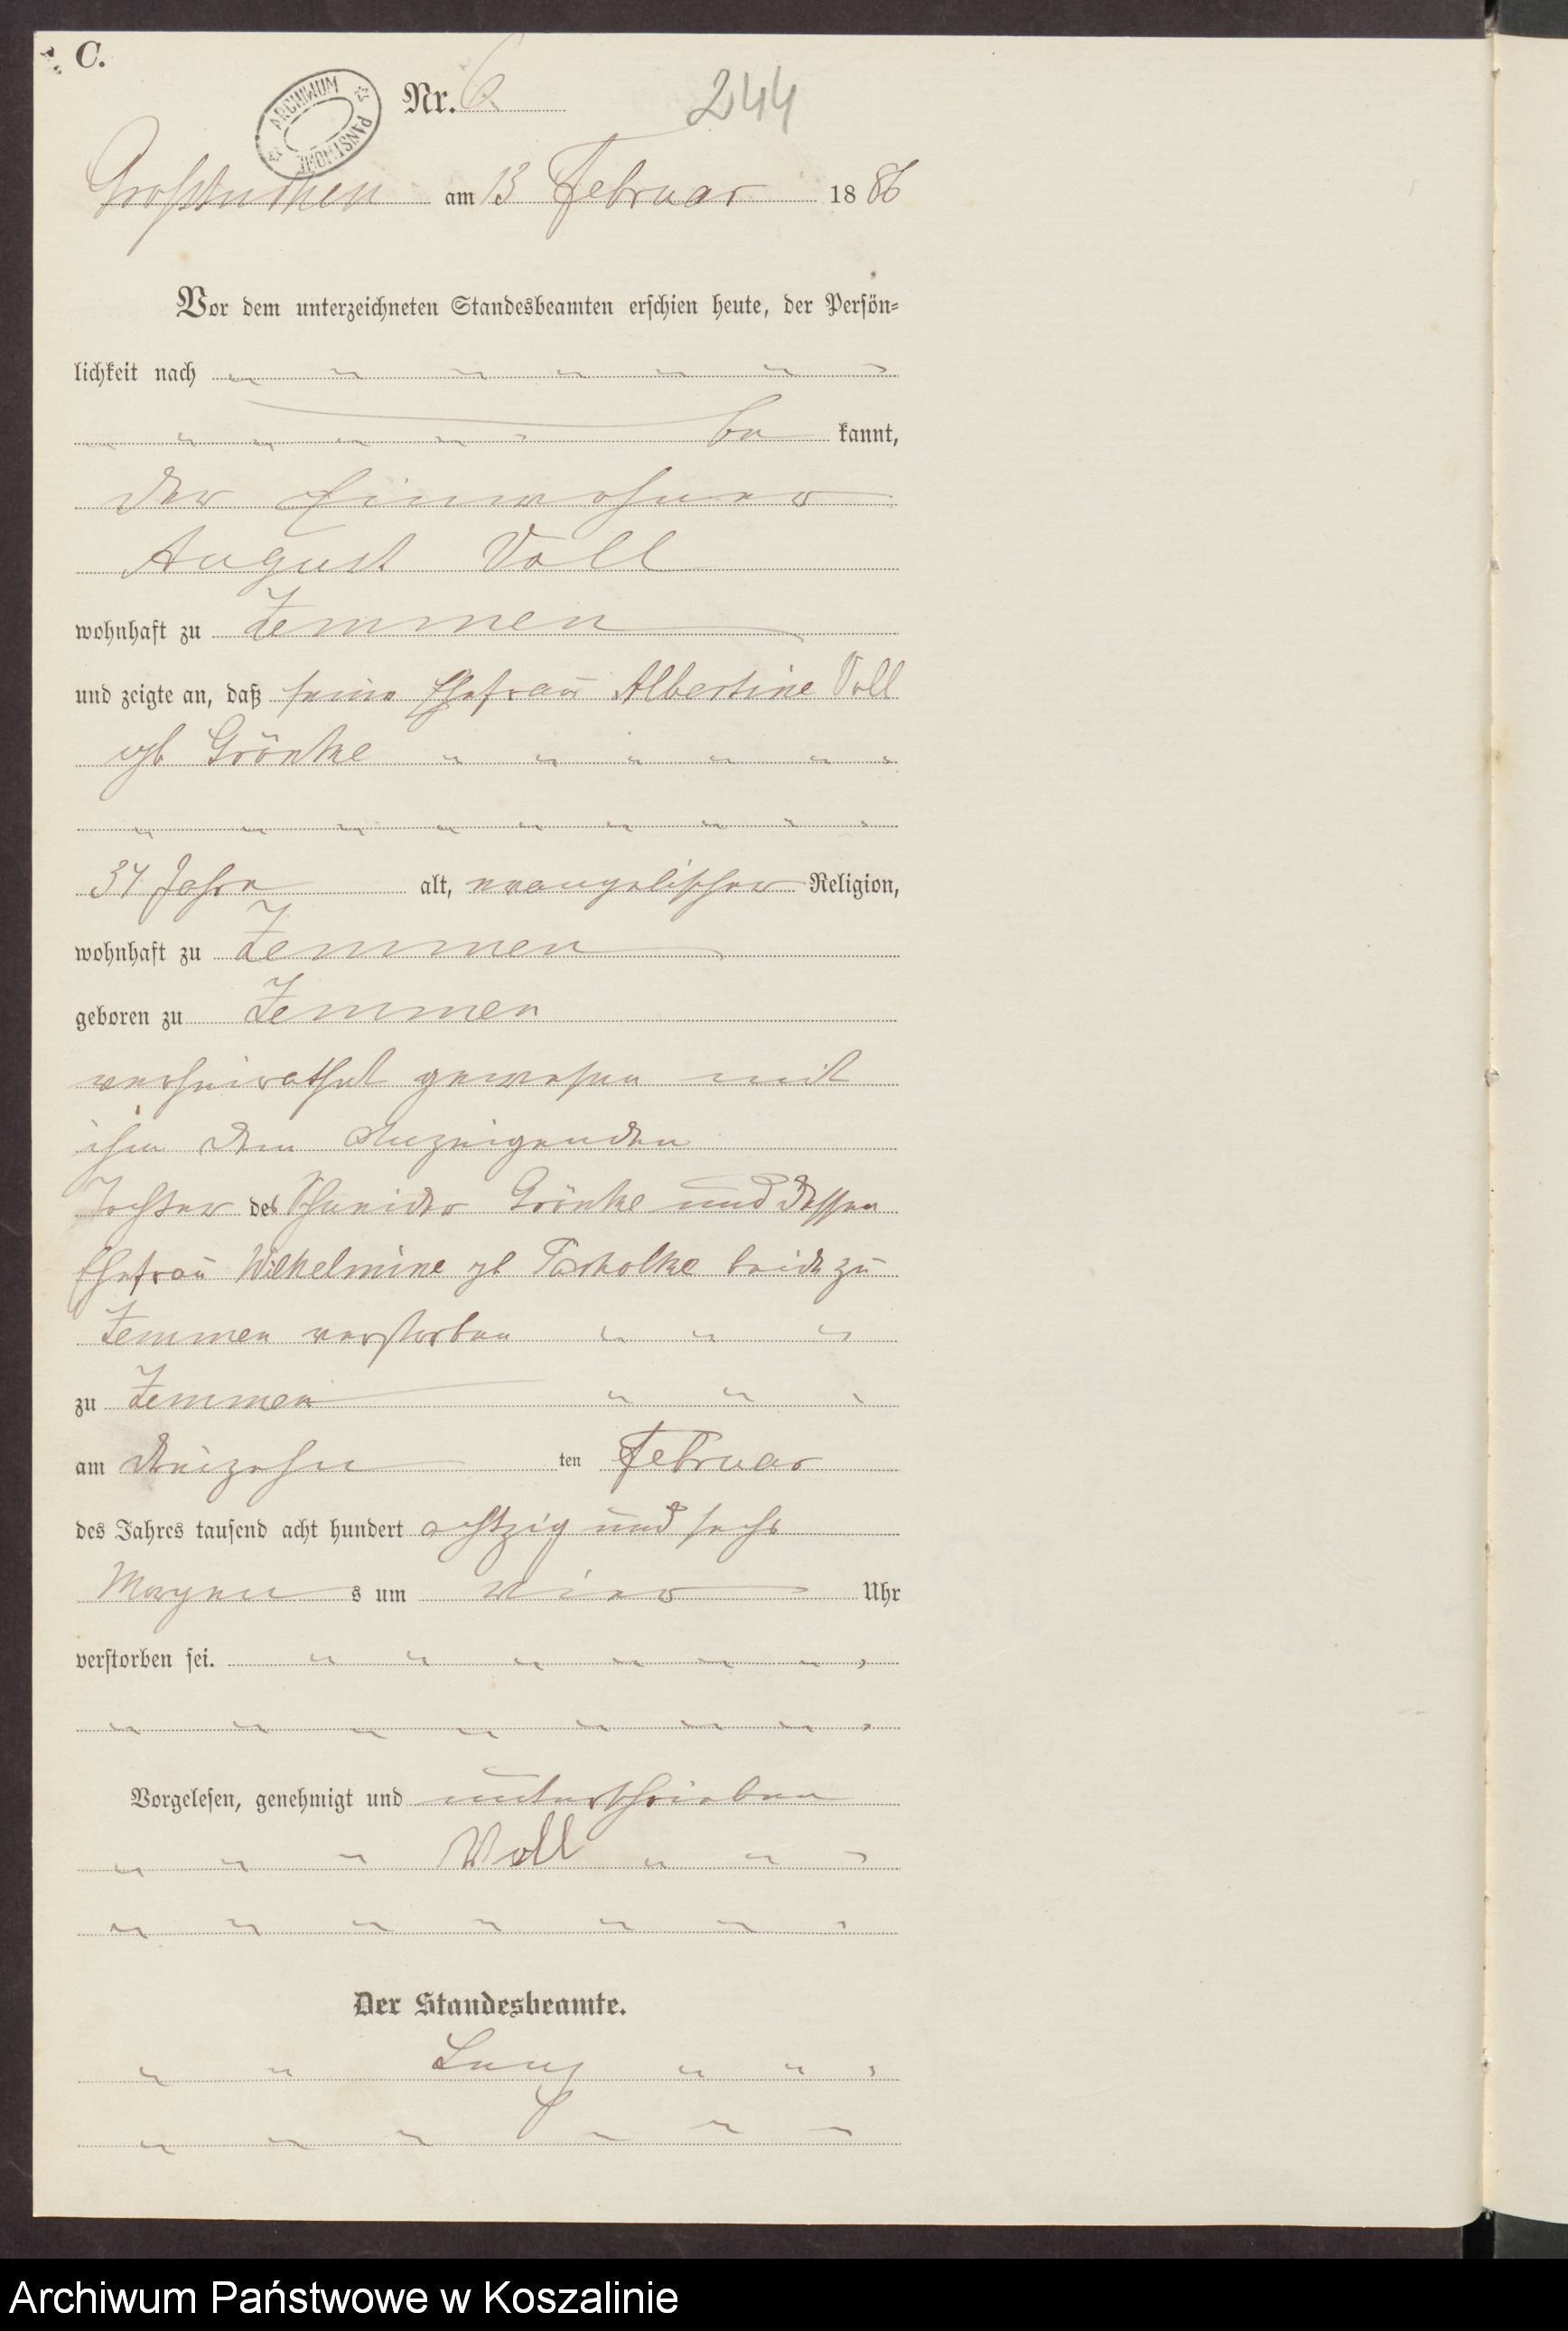 C.
ARCHIWUM PAŃSTWOWE
Nr. 6
244
Großtuchen am 13 Februar 1886
Vor dem unterzeichneten Standesbeamten erschien heute, der Persön=
lichkeit nach
be kannt,
der Einwohner
August Voll
wohnhaft zu Zemmen
und zeigte an, daß seine Ehefrau Albertine Voll
geb Grönke
34 Jahre alt, evangelischer Religion,
wohnhaft zu Zemmen
geboren zu Zemmen
verheirathet gewesen mit
ihm dem Anzeigenden
Tochter des Schneider Grönke und dessen
Ehefrau Wilhelmine gb beide zu
Zemmen verstorben
zu Zemmen
am dreizehn ten Februar
des Jahres tausend acht hundert achtzig und sechs
Morgen s um vier Uhr
verstorben sei.
Vorgelesen, genehmigt und unterschrieben
Voll
Der Standesbeamte.
Archiwum Państwowe w Koszalinie